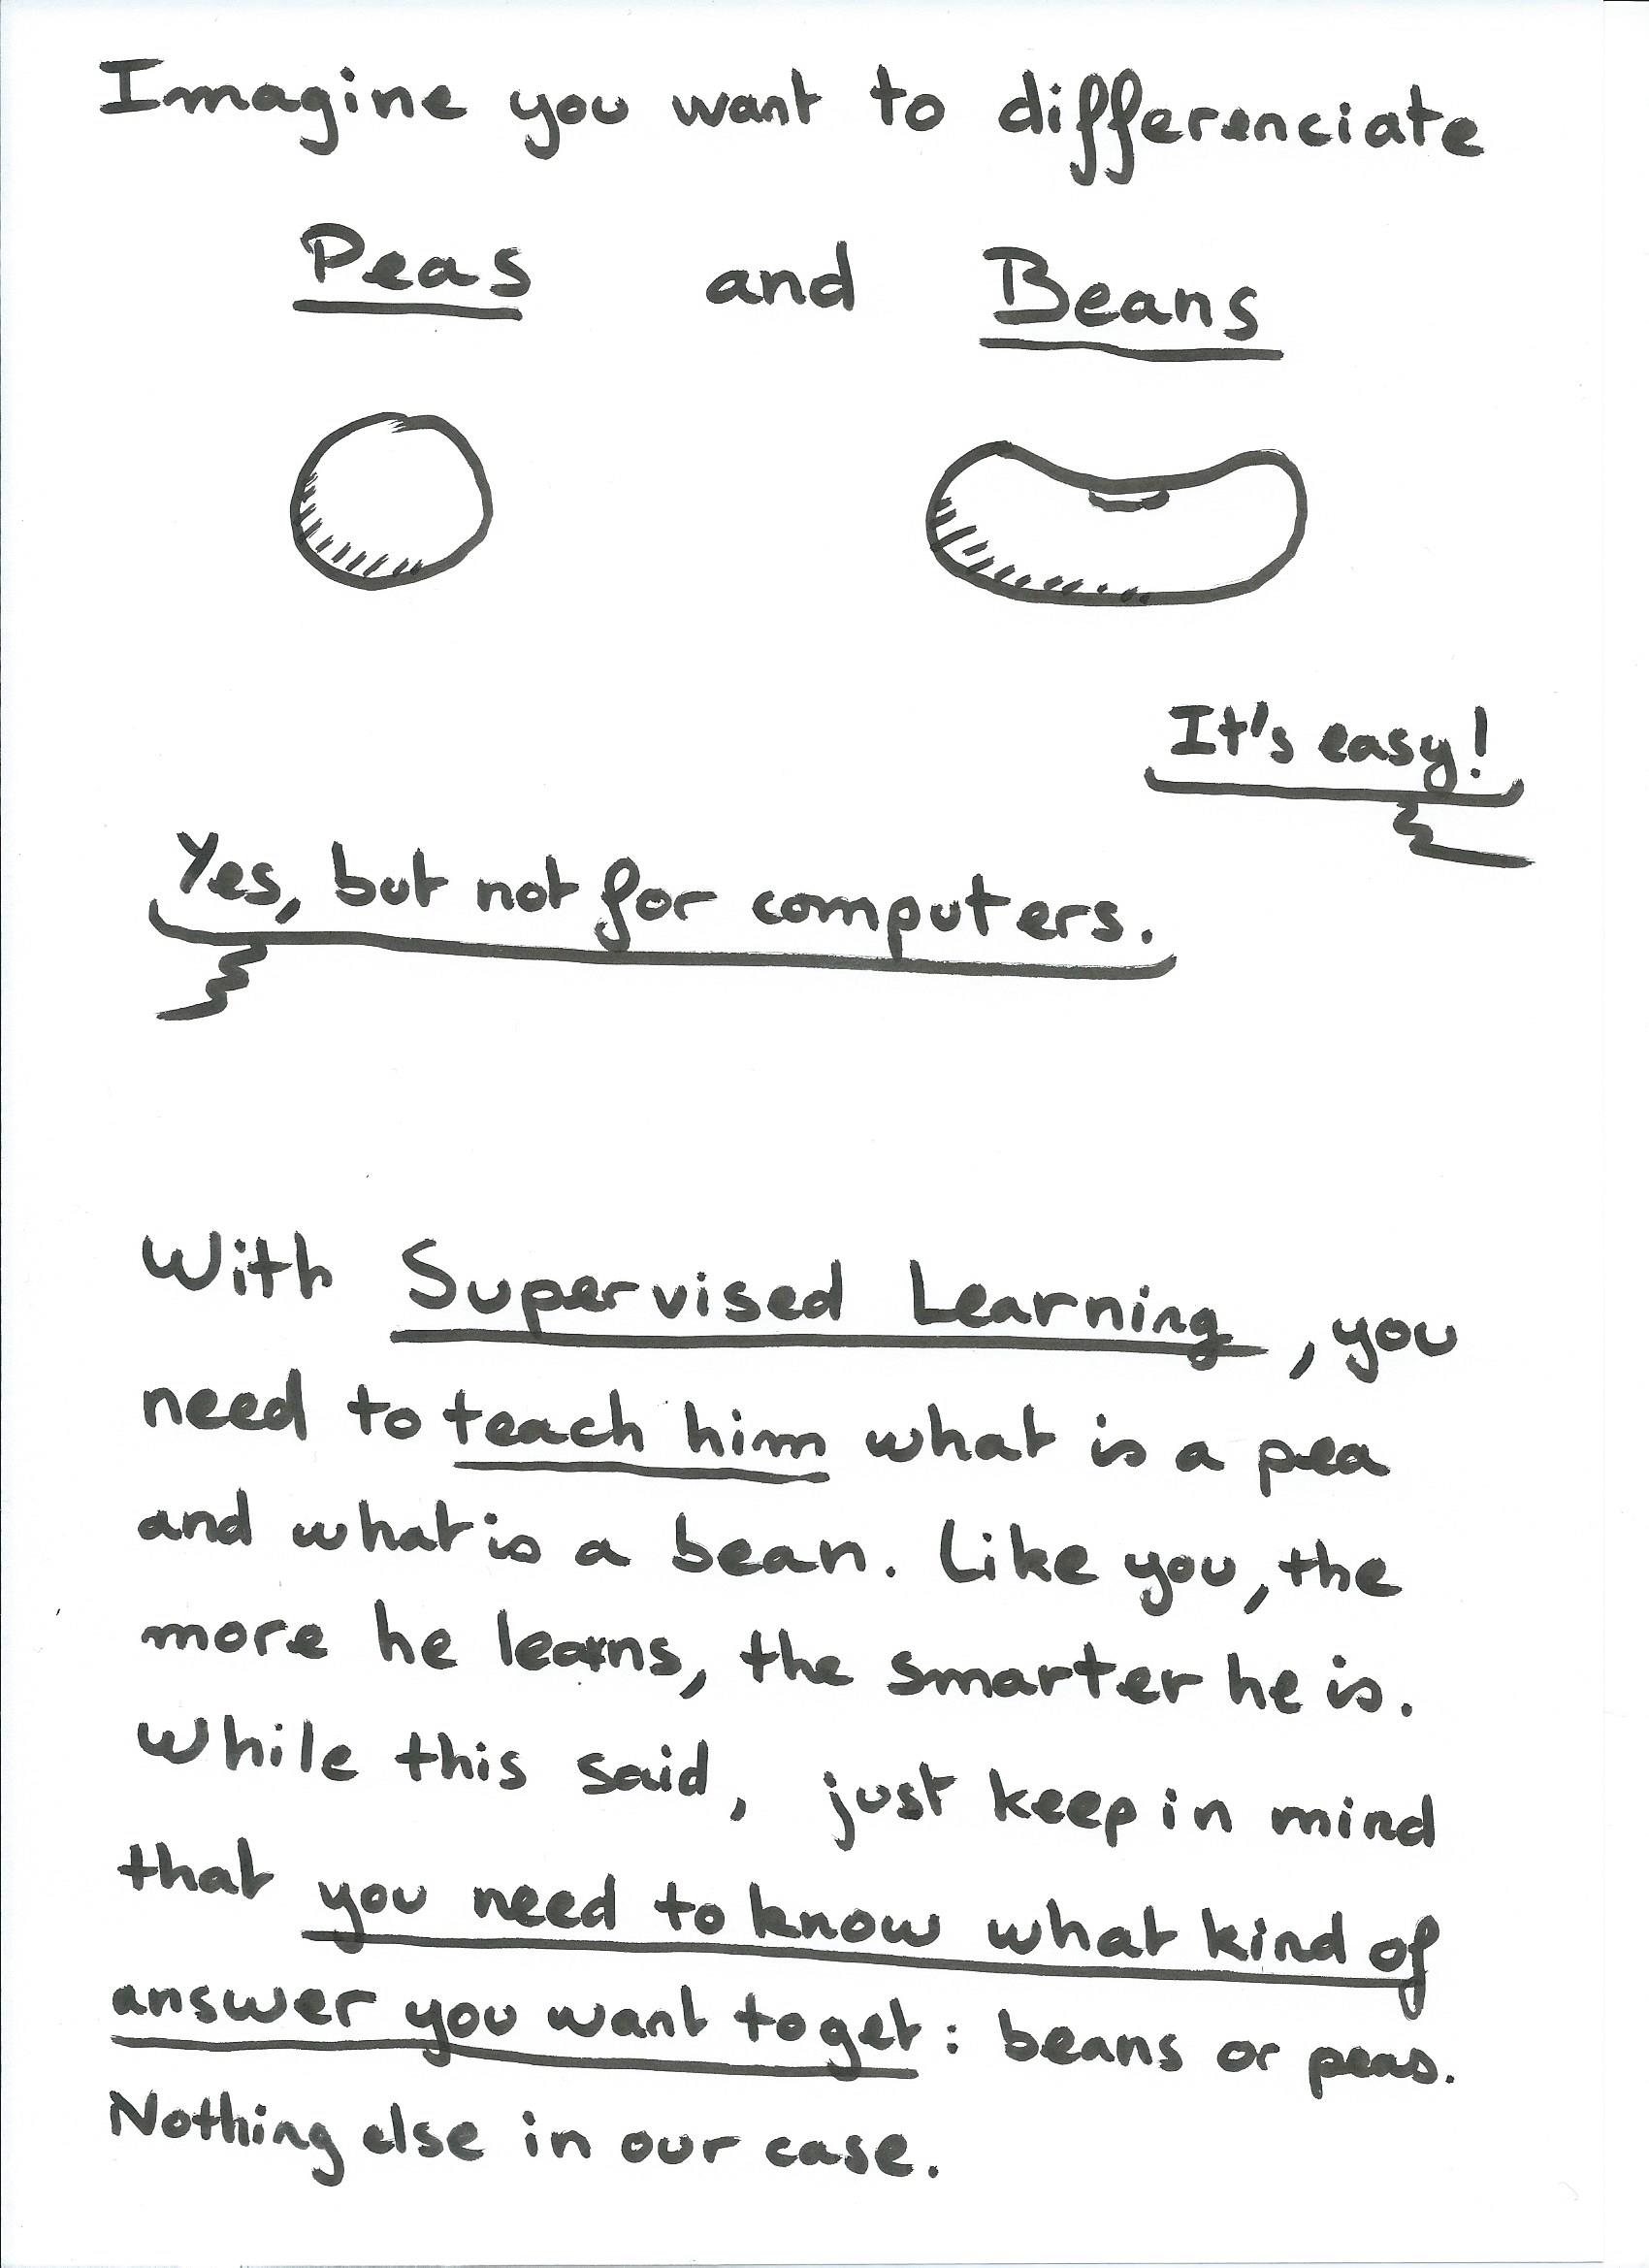 Imagine you want to differenciate
Peas and Beans
It's easy!
Yes, but not for computers.
With Supervised Learning, you
need to teach him what is a pea
and what is a bean. Like you, the
more he learns, the smarter he is.
While this said, just keep in mind
that you need to know what kind of
answer you want to get: beans or peas.
Nothing else in our case.